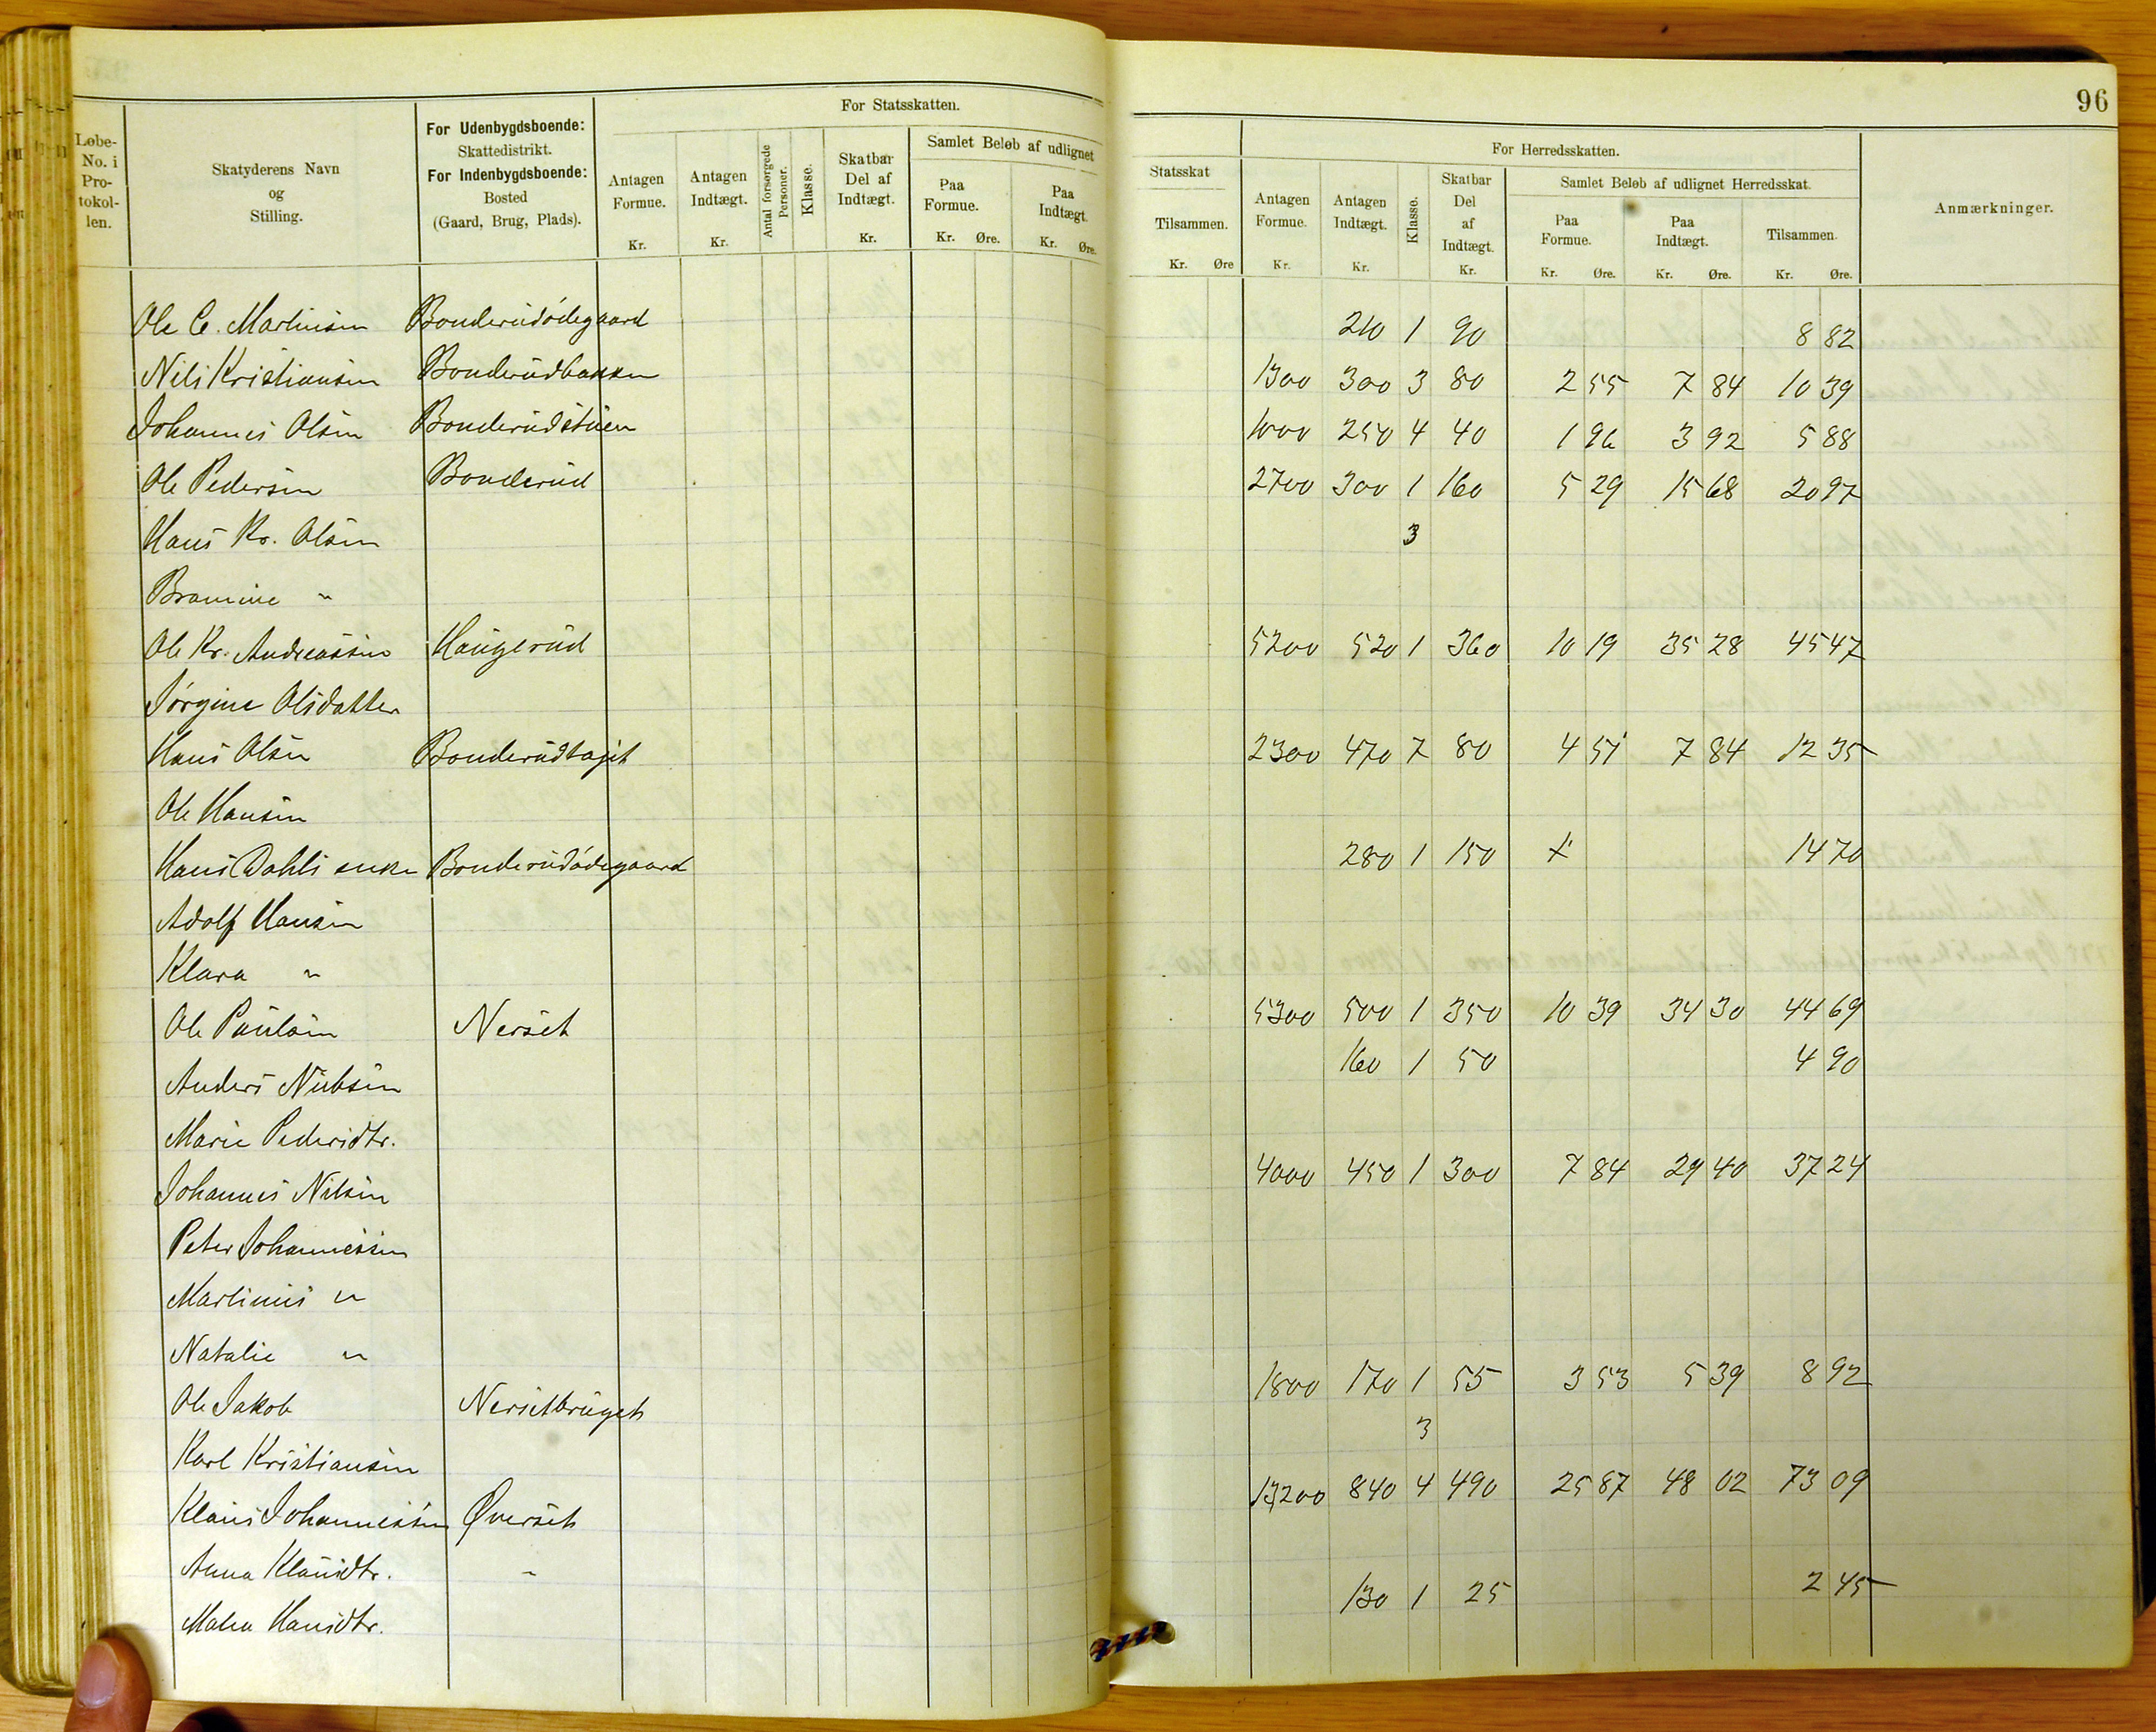 96
Løbe-No. i Pro-tokol-len.
Skatyderens Navn og Stilling.
For Udenbygdsboende: Skattedistrikt. For Indenbygdsboende: Bosted (Gaard, Brug, Plads).
For Statsskatten.
Antagen Formue. Kr.
Antagen Indtægt. Kr.
Antal forsørgede Personer.
Klasse.
Skatbar Del af Indtægt. Kr.
Samlet Beløb af udlignet
Paa Formue. Kr. Øre.
Paa Indtægt. Kr. Øre.
Statsskat
Tilsammen. Kr. Øre
For Herredsskatten.
Antagen Formue. Kr.
Antagen Indtægt. Kr.
Klasse.
Skatbar Del af Indtægt. Kr.
Samlet Beløb af udlignet Herredsskat.
Paa Formue. Kr. Øre.
Paa Indtægt. Kr. Øre.
Tilsammen. Kr. Øre.
Anmærkninger.
Ole C. Martinsen Bonderudødegaard 210 1 90 8 82
Nils Kristiansen Bonderudbakken 1300 300 3 80 2 55 7 84 10 39
Johannes Olsen Bonderudstuen 1000 250 4 40 1 96 3 92 5 88
Ole Pedersen Bonderud 2700 300 1 160 5 29 15 68 20 97
Hans Kr. Olsen 3
Bramine "
Ole Kr. Andreassen Haugerud 5200 520 1 360 10 19 35 28 45 47
Jørgine Olsdatter
Hans Olsen Bonderudtajet 2300 470 7 80 4 51 7 84 12 35
Ole Hansen
Hans Dahls enke Bonderudødegaard 280 1 150 + 14 70
Adolf Hansen
Klara "
Ole Paulsen Nerset 5300 500 1 350 10 39 34 30 44 69
Anders 160 1 50 4 90
Marie Pedersdtr.
Johannes Nilsen 4000 450 1 300 7 84 29 40 37 24
Peter Johannessen
Martinius "
Natalie "
Ole Jakob Nersetbruget 1800 170 1 55 3 53 5 39 8 92
Karl Kristiansen 3
Klaus Johannessen Øverset 13200 840 4 490 25 87 48 02 73 09
Anna Klausdtr. "
Malea Hansdtr. 130 1 25 2 45